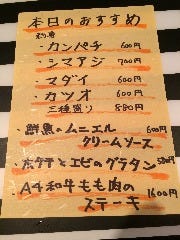 本日のおすすめ
刺身
・カンパチ 600円
・シマアジ 700円
・マダイ 600円
・カツオ 600円
三種盛り 880円
・鮮魚のムニエル 600円
クリームソース
・ホタテとエビのグラタン 580円
・A4和牛もも肉の
ステーキ 1600円